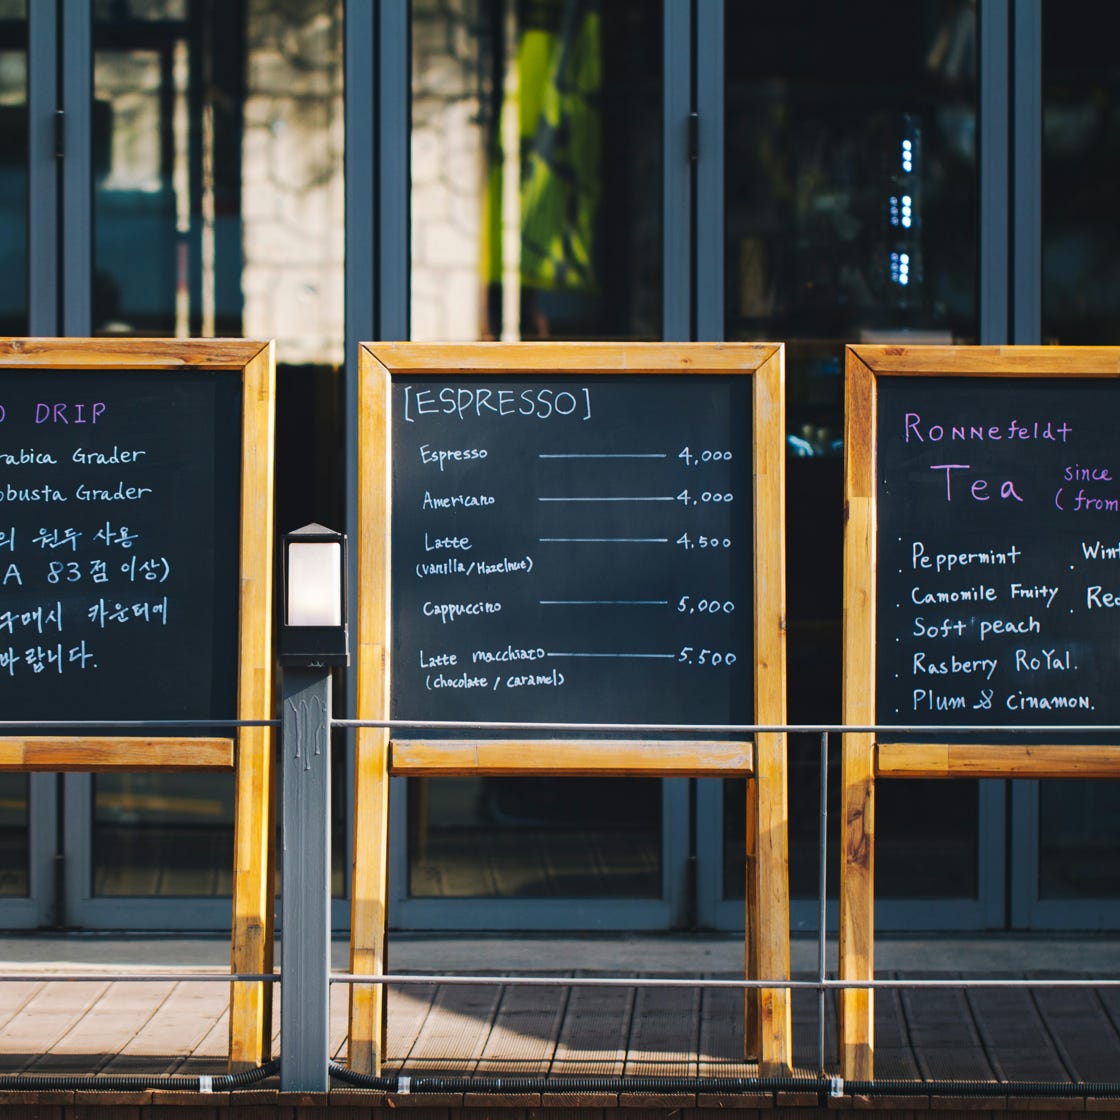 DRIP
Grader
Grader
원두 사용
A 83점 이상)
구매시 카운터에
바랍니다.
[ESPRESSO]
Espresso 4,000
Americano 4,000
Latte 4,500
(vanilla/Hazelnut)
Cappuccino 5,000
Latte macchiato 5,500
(chocolate / caramel)
RONNefeldt
Tea since
(from
. Peppermint
. Camomile Fruity
. Soft peach
. Rasberry RoYal.
. Plum & Cinnamon.